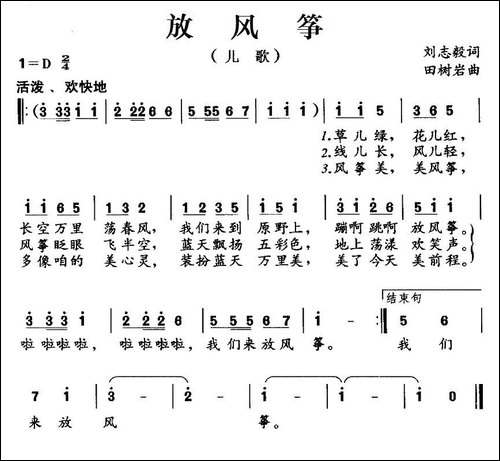 放风筝
（儿歌）
刘志毅词
田树岩曲
1=D 2/4
活泼、欢快地
‖:(3̇ 3̇3̇ i i | 2̇ 2̇2̇ 6 6 | 5 55 6 7 | i i i) | i i 5 | 3 6 5 |
1.草儿绿， 花儿红，
2.线儿长， 风儿轻，
3.风筝美， 美风筝，
i i 6 5 | 1 3 2 | 1 2 3 5 | i 5 i | 3̇ i 2̇ 6 | 5 6 5 |
长空万里 荡春风， 我们来到 原野上， 蹦啊跳啊 放风筝。
风筝眨眼 飞半空， 蓝天飘扬 五彩色， 地上荡漾 欢笑声。
多像咱的 美心灵， 装扮蓝天 万里美， 美了今天 美前程。
结束句
3̇ 3̇3̇ i | 2̇ 2̇2̇ 6 | 5 55 6 7 | i | i - :‖ 5 6 |
啦 啦啦啦， 啦啦啦啦， 我们来放风 筝。 我们
7 i | 3̇ - | 2̇ - | i - | i - | i 0 ‖
来放 风 筝。